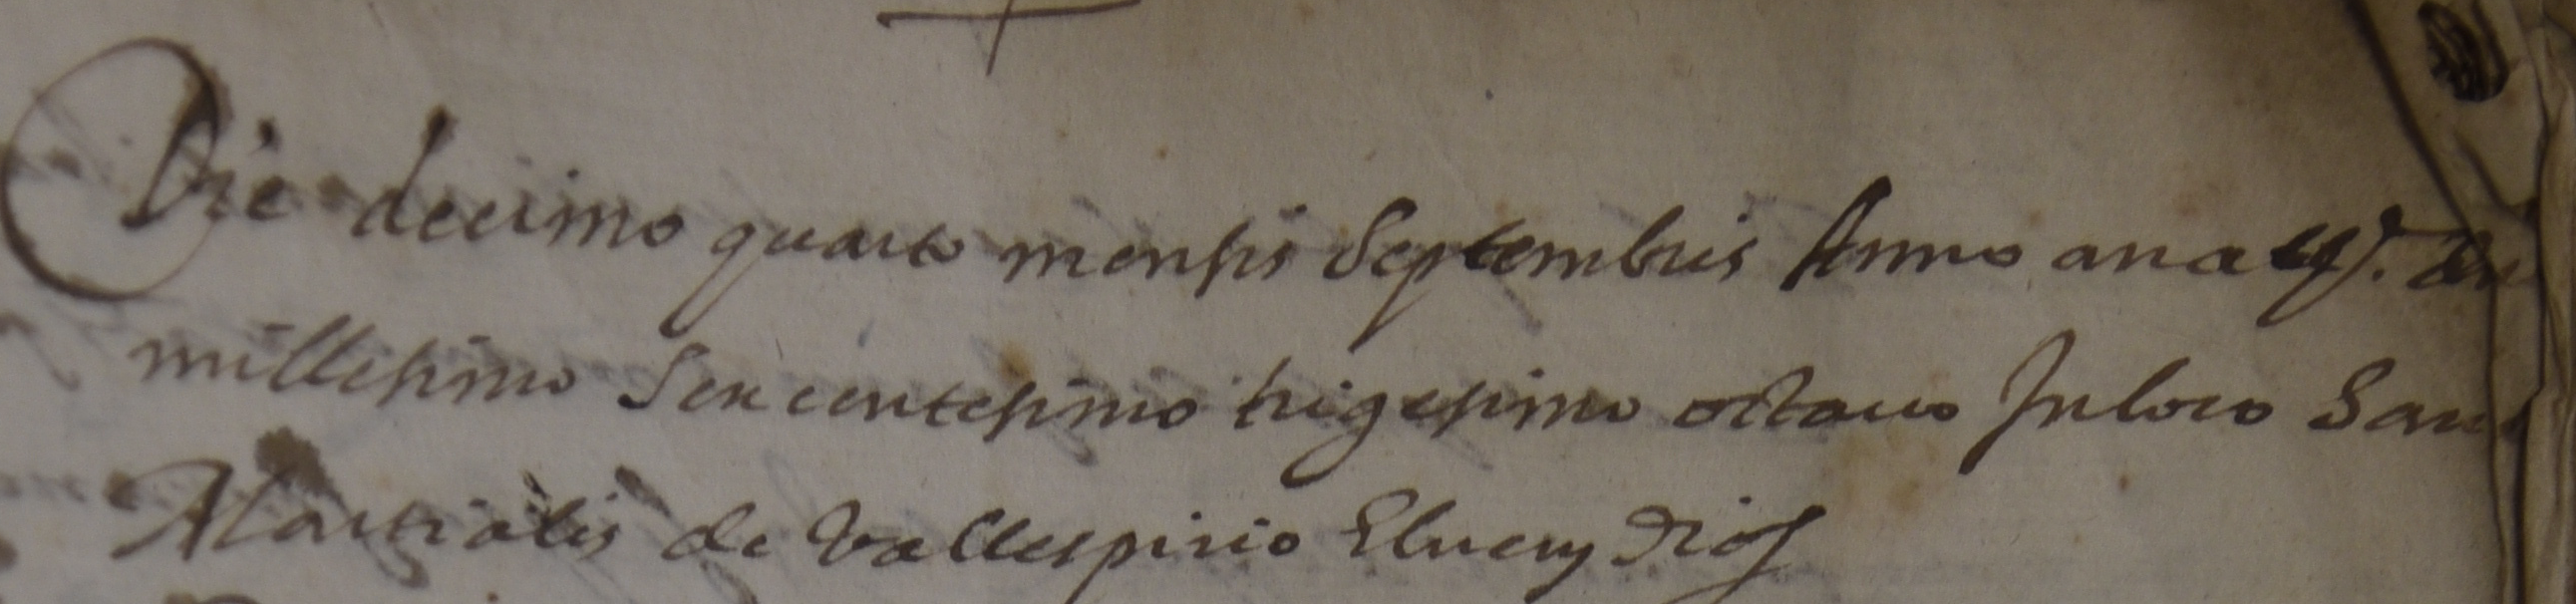 Die decimo quarto mensis Septembris Anno a nat.
millesimo Sexcentesimo trigesimo octavo In loco Sanct
Martialis de Vallespirio Elnen Dios